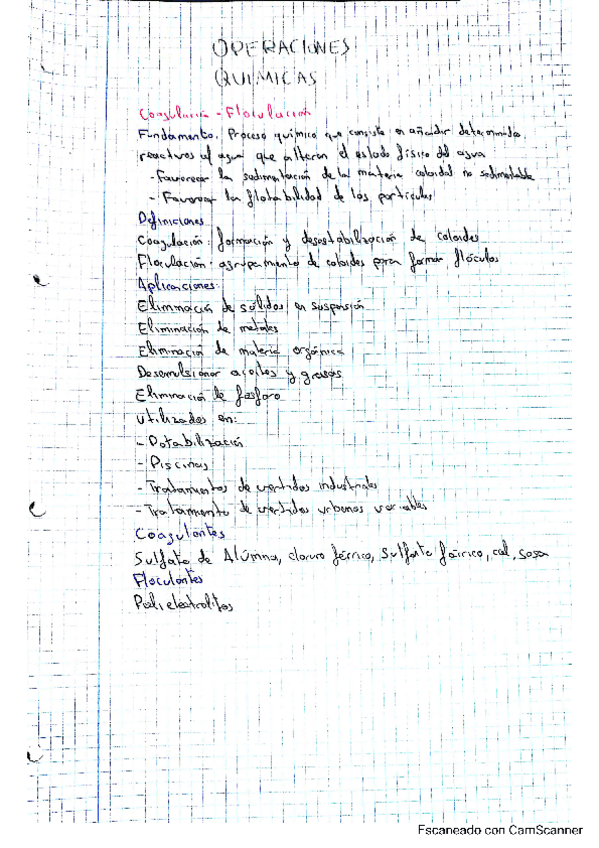 OPERACIONES
QUIMICAS
Coagulación - Floculación
Fundamento. Proceso químico que consiste en añadir determinados
reactivos al agua que alteran el estado físico del agua
- Favorecer la sedimentación de la materia coloidal no sedimentable
- Favorecer la flotabilidad de las partículas
Definiciones
Coagulación: formación y desestabilización de coloides
Floculación: agrupamiento de coloides para formar flóculos
Aplicaciones:
Eliminación de sólidos en suspensión
Eliminación de metales
Eliminación de materia orgánica
Desemulsionar aceites y grasas
Eliminación de fosforo
Utilizados en:
- Potabilización
- Piscinas
- Tratamientos de vertidos industriales
- Tratamiento de vertidos urbanos variables
Coagulantes
Sulfato de Alúmina, cloruro férrico, Sulfato férrico, cal, sosa
Floculantes
Polielectrolitos
Escaneado con CamScanner